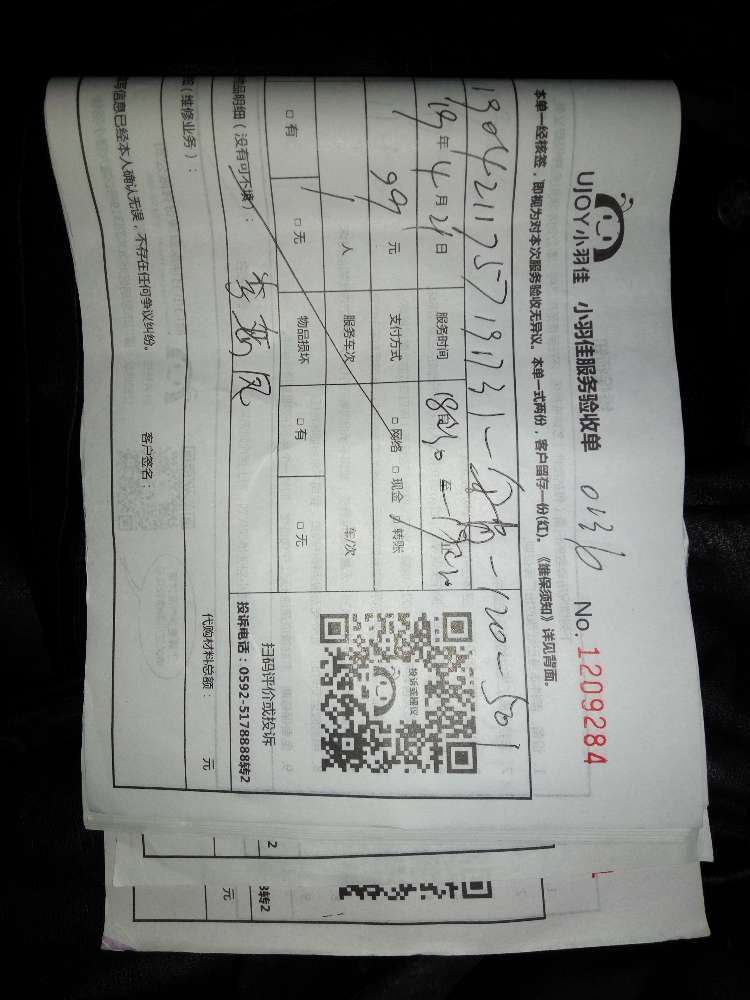 UJOY小羽佳 小羽佳服务验收单 0136 No. 1209284
本单一经核签，即视为对本次服务验收无异议。本单一式两份，客户留存一份(红)。《维保须知》详见背面。
-120-501
19年4月21日 服务时间 至
99元 支付方式 □ 网络 □ 现金 转账
1 人 服务车次 车/次
□ 有 □ 无 物品损坏 □ 有 □ 无
投诉或建议
扫码评价或投诉
投诉电话：0592-5178888转2
品明细（没有可不填）：
(维修业务）： 代购材料总额： 元
写信息已经本人确认无误，不存在任何争议纠纷。 客户签名：
2
转2
元